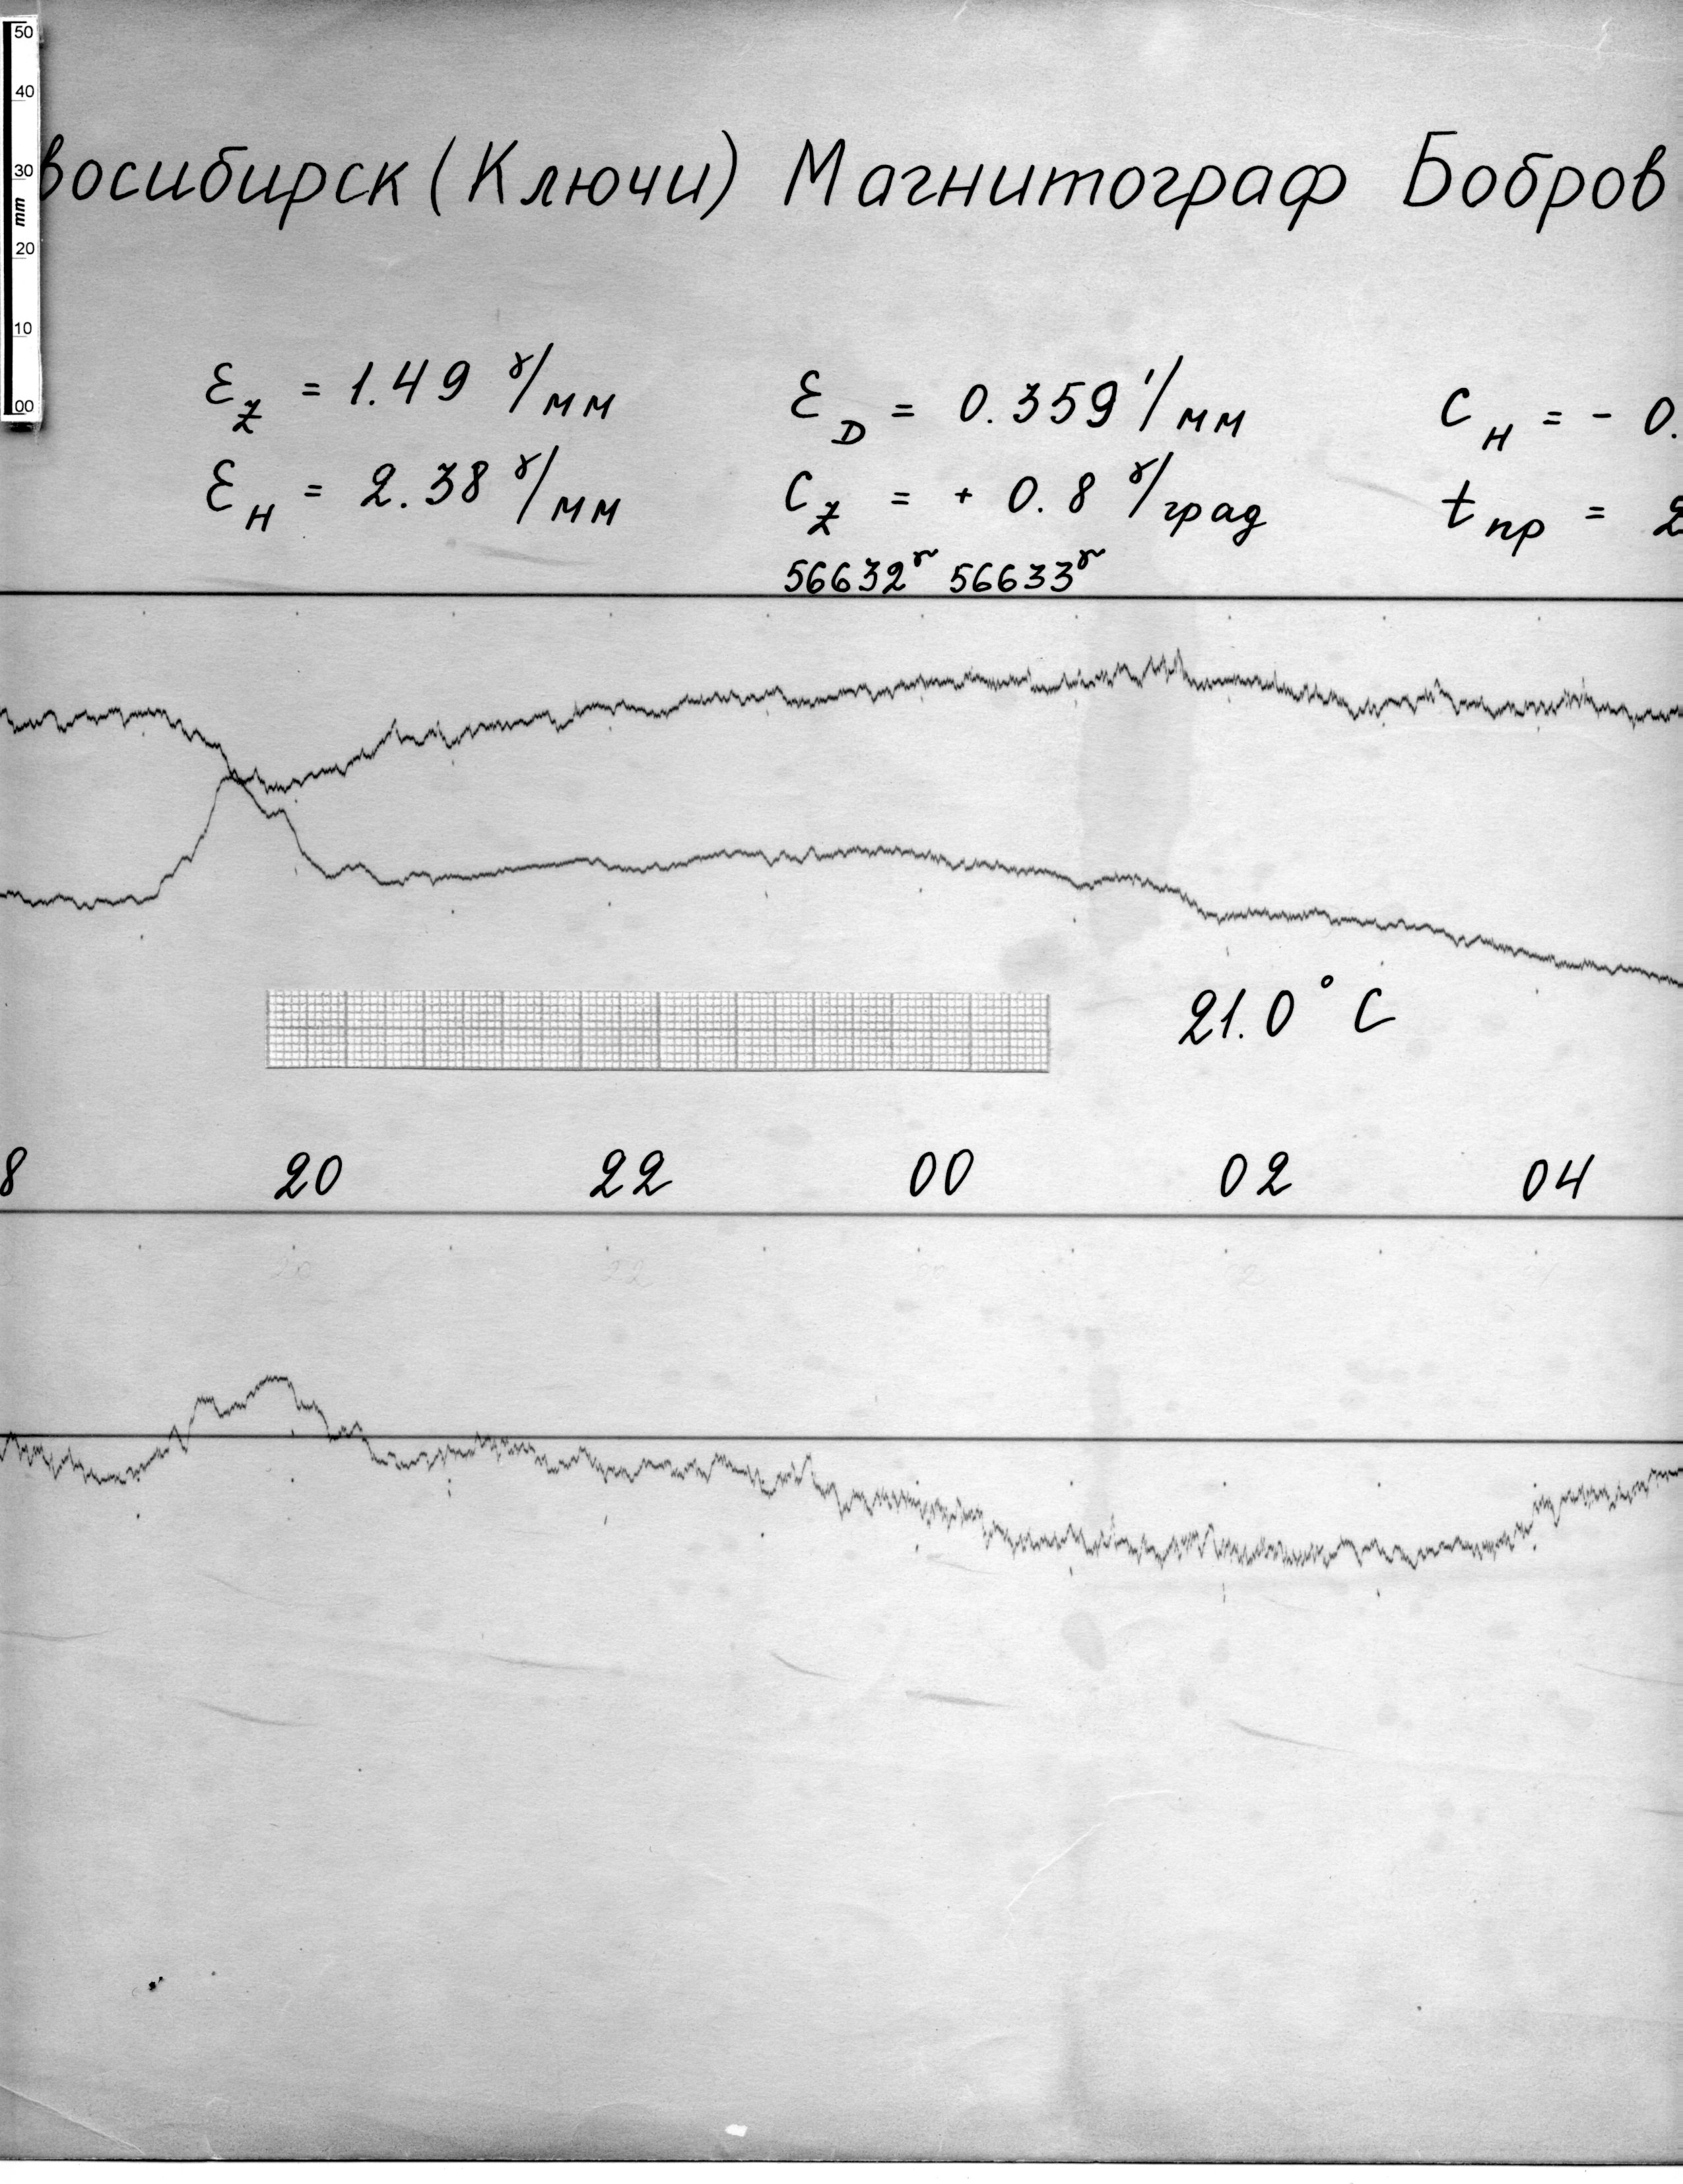 50
40
30
mm
20
10
00
восибирск (Ключи) Магнитограф Бобров
ε_Z = 1.49 γ/мм ε_D = 0.359 ′/мм C_H = - 0.
ε_H = 2.38 γ/мм C_Z = + 0.8 γ/град t_пр = 2
56632γ 56633γ
21.0° C
8 20 22 00 02 04